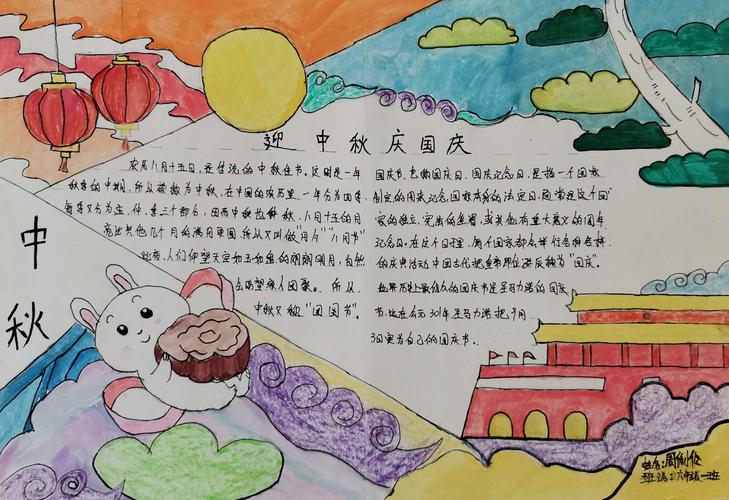 迎中秋庆国庆
农历八月十五日,是传统的中秋佳节。这时是一年
秋季的中期,所以被称为中秋,在中国的农历里,一年分为四季
每季又分为孟、仲、季三个部分,因而中秋也称仲秋。八月十五的月
亮比其他几个月的满月更圆,所以又叫做“月夕”“八月节”
此夜,人们仰望天空如玉如盘的朗朗明月,自然
会期望家人团聚。所以
中秋又称“团圆节”。
国庆节,也称国庆日、国庆纪念日,是指一个国家
制定的用来纪念国家本身的法定日,通常是这个国
家的独立、宪法的签署,或其他有重大意义的周年
纪念日,在这个日子里,每个国家都会举行各种各样
的庆典活动 中国古代把皇帝即位 诞辰称为“国庆”。
世界历史上最悠久的国庆节是圣马力诺的国庆
节,远在公元301年圣马力诺把9月
3日定为自己的国庆节。
中
秋
姓名:周
班级:六年级一班